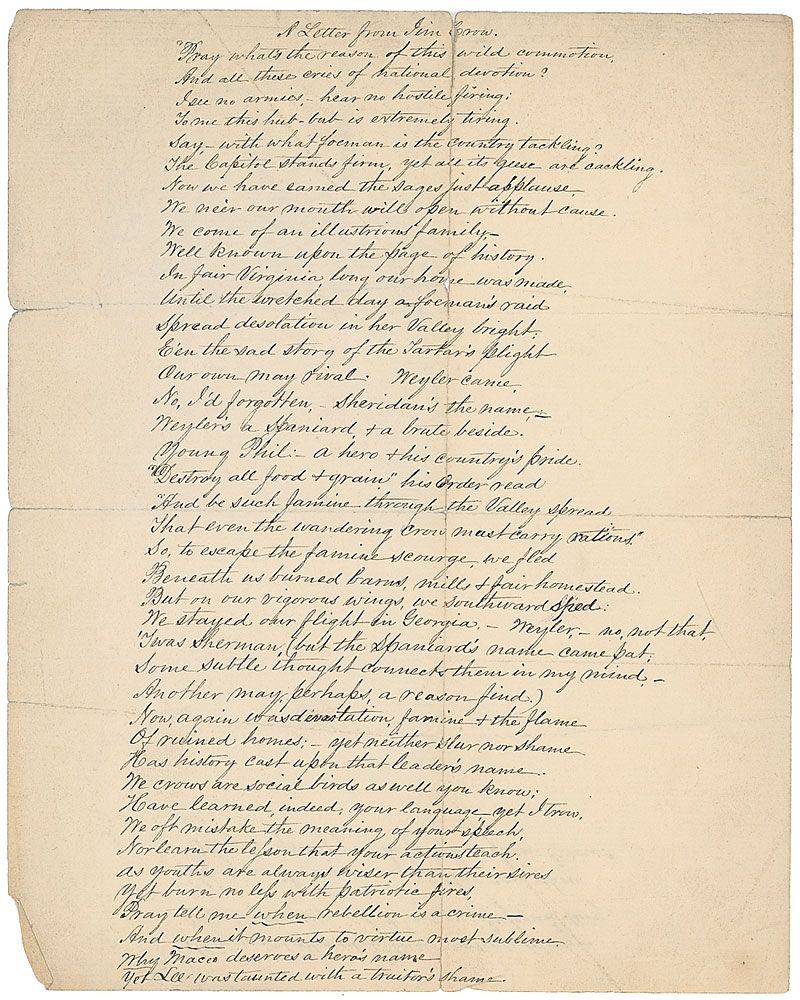 A Letter from Jim Crow.
"Pray what's the reason of this wild commotion,
And all these cries of national devotion?
I see no armies, – hear no hostile firing;
To me this hub-bub is extremely tiring.
Say – with what foeman is the country tackling?
The Capitol stands firm, yet all its geese are cackling.
Now we have earned the sages just applause
We ne'er our mouth will open without cause.
We come of an illustrious family –
Well known upon the page of history.
In fair Virginia, long our home was made,
Until the wretched day a foeman's raid
Spread desolation in her Valley bright;
E'en the sad story of the Tartar's flight
Our own may rival. Weyler came,
No, I'd forgotten, – Sheridan's the name; –
Weyler's a Spaniard, & a brute beside.
Young Phil: – a hero & his country's pride.
"Destroy all food & grain," his order read
"And be such famine through the Valley spread
That even the wandering crow must carry rations."
So, to escape the famine scourge, we fled
Beneath us burned barns, mills & fair homestead.
But on our vigorous wings, we southward sped:
We stayed our flight in Georgia, – Weyler, – no, not that,
'Twas Sherman, (but the Spaniard's name came pat;
Some subtle thought connects them in my mind, –
Another may, perhaps, a reason find.)
Now, again was devastation, famine & the flame
Of ruined homes; – yet neither slur nor shame
Has history cast upon that leader's name.
We crows are social birds as well you know;
Have learned, indeed, your language, yet I trow,
We oft mistake the meaning of your speech,
Nor learn the lesson that your actions teach.
As youths are always wiser than their sires
Yet burn no less with patriotic fires,
Pray tell me when rebellion is a crime –
And when it mounts to virtue most sublime.
Why Maceo deserves a hero's name
Yet Lee was taunted with a traitor's shame.